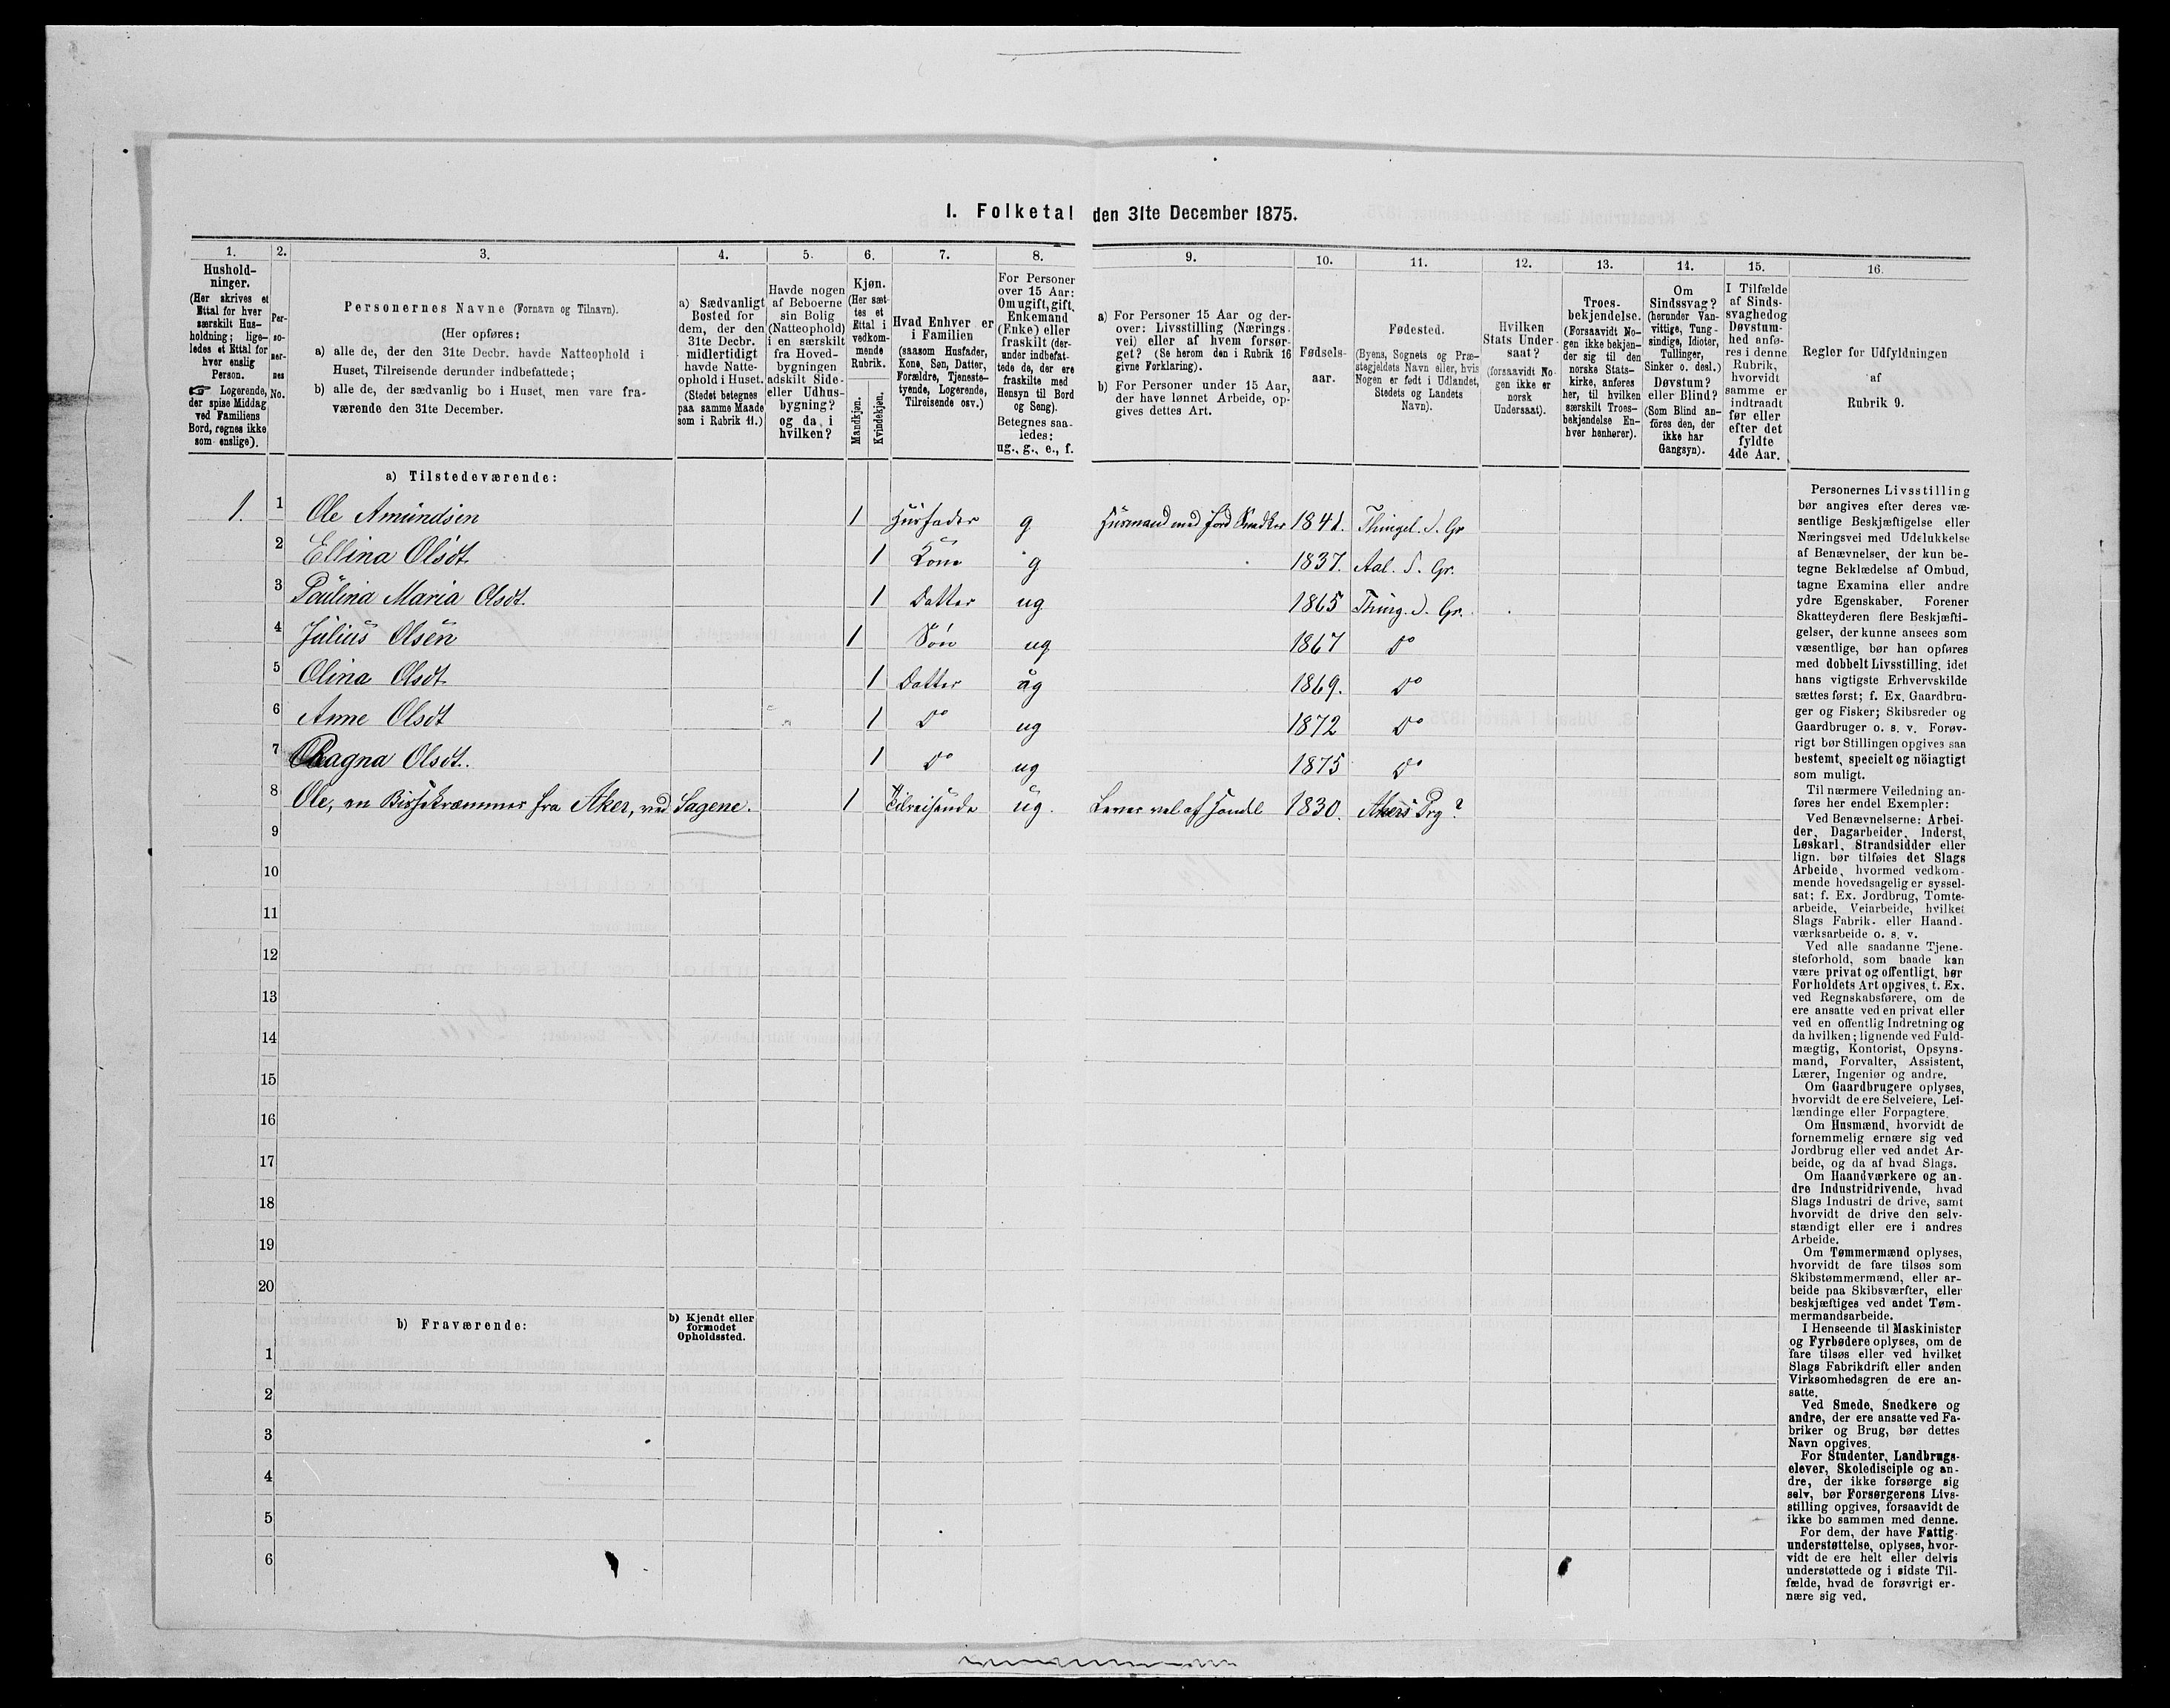 1. Folketal den 31te December 1875.
1.
Hushold-
ninger.
(Her skrives et
Ettal for hver
særskilt Hus-
holdning; lige-
ledes et Ettal for
hver enslig
Person.
☞ Logerende,
der spise Middag
ved Familiens
Bord, regnes ikke
som enslige).
2.
Per-
so-
ner-
nes
No.
3.
Personernes Navne (Fornavn og Tilnavn).
(Her opføres:
a) alle de, der den 31te Decbr. havde Natteophold i
Huset, Tilreisende derunder indbefattede;
b) alle de, der sædvanlig bo i Huset, men vare fra-
værende den 31te December.
4.
a) Sædvanligt
Bosted for
dem, der den
31te Decbr.
midlertidigt
havde Natte-
ophold i Huset.
(Stedet betegnes
paa samme Maade
som i Rubrik 11.)
5.
Havde nogen
af Beboerne
sin Bolig
(Natteophold)
i en særskilt
fra Hoved-
bygningen
adskilt Side-
eller Udhus-
bygning?
og da i
hvilken?
6.
Kjøn.
(Her sæt-
tes et
Ettal i
vedkom-
mende
Rubrik.
Mandkjøn.
Kvindekjøn.
7.
Hvad Enhver er
i Familien
(saasom Husfader,
Kone, Søn, Datter,
Forældre, Tjeneste-
tyende, Logerende,
Tilreisende osv.)
8.
For Personer
over 15 Aar:
Om ugift, gift,
Enkemand
(Enke) eller
fraskilt (der-
under indbefat-
tede de, der ere
fraskilte med
Hensyn til Bord
og Seng).
Betegnes saa-
ledes:
ug., g., e., f.
9.
a) For Personer 15 Aar og der-
over: Livsstilling (Nærings-
vei) eller af hvem forsør-
get? (Se herom den i Rubrik 16
givne Forklaring).
b) For Personer under 15 Aar,
der have lønnet Arbeide, op-
gives dettes Art.
10.
Fødsels-
aar.
11.
Fødested.
(Byens, Sognets og Præ-
stegjeldets Navn eller, hvis
Nogen er født i Udlandet,
Stedets og Landets
Navn).
12.
Hvilken
Stats Under-
saat?
(forsaavidt No-
gen ikke er
norsk
Undersaat).
13.
Troes-
bekjendelse.
(Forsaavidt No-
gen ikke bekjen-
der sig til den
norske Stats-
kirke, anføres
her, til hvilken
særskilt Troes-
bekjendelse En-
hver henhører).
14.
Om
Sindssvag?
(herunder Van-
vittige, Tung-
sindige, Idioter,
Tullinger,
Sinker o. desl.)
Døvstum?
eller Blind?
(Som Blind an-
føres den, der
ikke har
Gangsyn).
15.
I Tilfælde
af Sinds-
svaghed og
Døvstum-
hed anfø-
res i denne
Rubrik,
hvorvidt
samme er
indtraadt
før eller
efter det
fyldte
4de Aar.
16.
Regler for Udfyldningen
af
Rubrik 9.
a) Tilstedeværende:
1. 1 Ole Amundsen 1 Husfader g Husmand med Jord Snedker 1841. Thingel. S. Gr
2 Ellina Olsdt. 1 Kone g 1837. Aal. S. Gr.
3 Paulina Maria Olsdt. 1 Datter ug 1865 Thing. S. Gr.
4 Julius Olsen 1 Søn ug 1867 Do
5 Olina Olsdt 1 Datter ug 1869. Do
6 Anne Olsdt 1 Do ug 1872 Do
7 Ragna Olsdt. 1 Do ug 1875 Do
8 Ole, en Bissekræmmer fra Aker, ved Sagene. 1 Tilreisende ug. Lever vel af Handel 1830. Akers Prg?
9
10
11
12
13
14
15
16
17
18
19
20
b) Fraværende:
b) Kjendt eller
formodet
Opholdssted.
1
2
3
4
5
6
Personernes Livsstilling
bør angives efter deres væ-
sentlige Beskjæftigelse eller
Næringsvei med Udelukkelse
af Benævnelser, der kun be-
tegne Beklædelse af Ombud,
tagne Examina eller andre
ydre Egenskaber. Forener
Skatteyderen flere Beskjæfti-
gelser, der kunne ansees som
væsentlige, bør han opføres
med dobbelt Livsstilling, idet
hans vigtigste Erhvervskilde
sættes først; f. Ex. Gaardbru-
ger og Fisker; Skibsreder og
Gaardbruger o. s. v. Forøv-
rigt bør Stillingen opgives saa
bestemt, specielt og nöiagtigt
som muligt.
Til nærmere Veiledning an-
føres her endel Exempler:
Ved Benævnelserne: Arbei-
der, Dagarbeider, Inderst,
Løskarl, Strandsidder eller
lign. bør tilføies det Slags
Arbeide, hvormed vedkom-
mende hovedsagelig er syssel-
sat; f. Ex. Jordbrug, Tomte-
arbeide, Veiarbeide, hvilket
Slags Fabrik- eller Haand-
værksarbeide o. s. v.
Ved alle saadanne Tjene-
steforhold, som baade kan
være privat og offentligt, bør
Forholdets Art opgives, t. Ex.
ved Regnskabsførere, om de
ere ansatte ved en privat eller
ved en offentlig Indretning og
da hvilken; lignende ved Fuld-
mægtig, Kontorist, Opsyns-
mand, Forvalter, Assistent,
Lærer, Ingeniør og andre.
Om Gaardbrugere oplyses,
hvorvidt de ere Selveiere, Lei-
lændinge eller Forpagtere.
Om Husmænd, hvorvidt de
fornemmelig ernære sig ved
Jordbrug eller ved andet Ar-
beide, og da af hvad Slags.
Om Haandværkere og an-
dre Industridrivende, hvad
Slags Industri de drive, samt
hvorvidt de drive den selv-
stændigt eller ere i andres
Arbeide.
Om Tømmermænd oplyses,
hvorvidt de fare tilsøs som
Skibstømmermænd, eller ar-
beide paa Skibsværfter, eller
beskjæftiges ved andet Tøm-
mermandsarbeide.
I Henseende til Maskinister
og Fyrbødere oplyses, om de
fare tilsøs eller ved hvilket
Slags Fabrikdrift eller anden
Virksomhedsgren de ere an-
satte.
Ved Smede, Snedkere og
andre, der ere ansatte ved Fa-
briker og Brug, bør dettes
Navn opgives.
For Studenter, Landbrugs-
elever, Skoledisciple og an-
dre, der ikke forsørge sig
selv, bør Forsørgerens Livs-
stilling opgives, forsaavidt de
ikke bo sammen med denne.
For dem, der have Fattig-
understøttelse, oplyses, hvor-
vidt de ere helt eller delvis
understøttede og i sidste Til-
fælde, hvad de forøvrigt er-
nære sig ved.